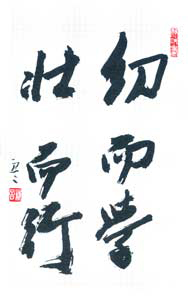 幼而学
壮而行